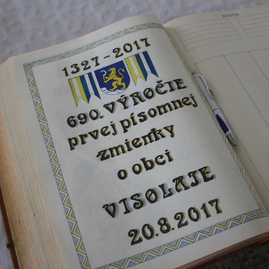 1327-2017
690. VÝROČIE
prvej písomnej
zmienky
o obci
VISOLAJE
20.8.2017